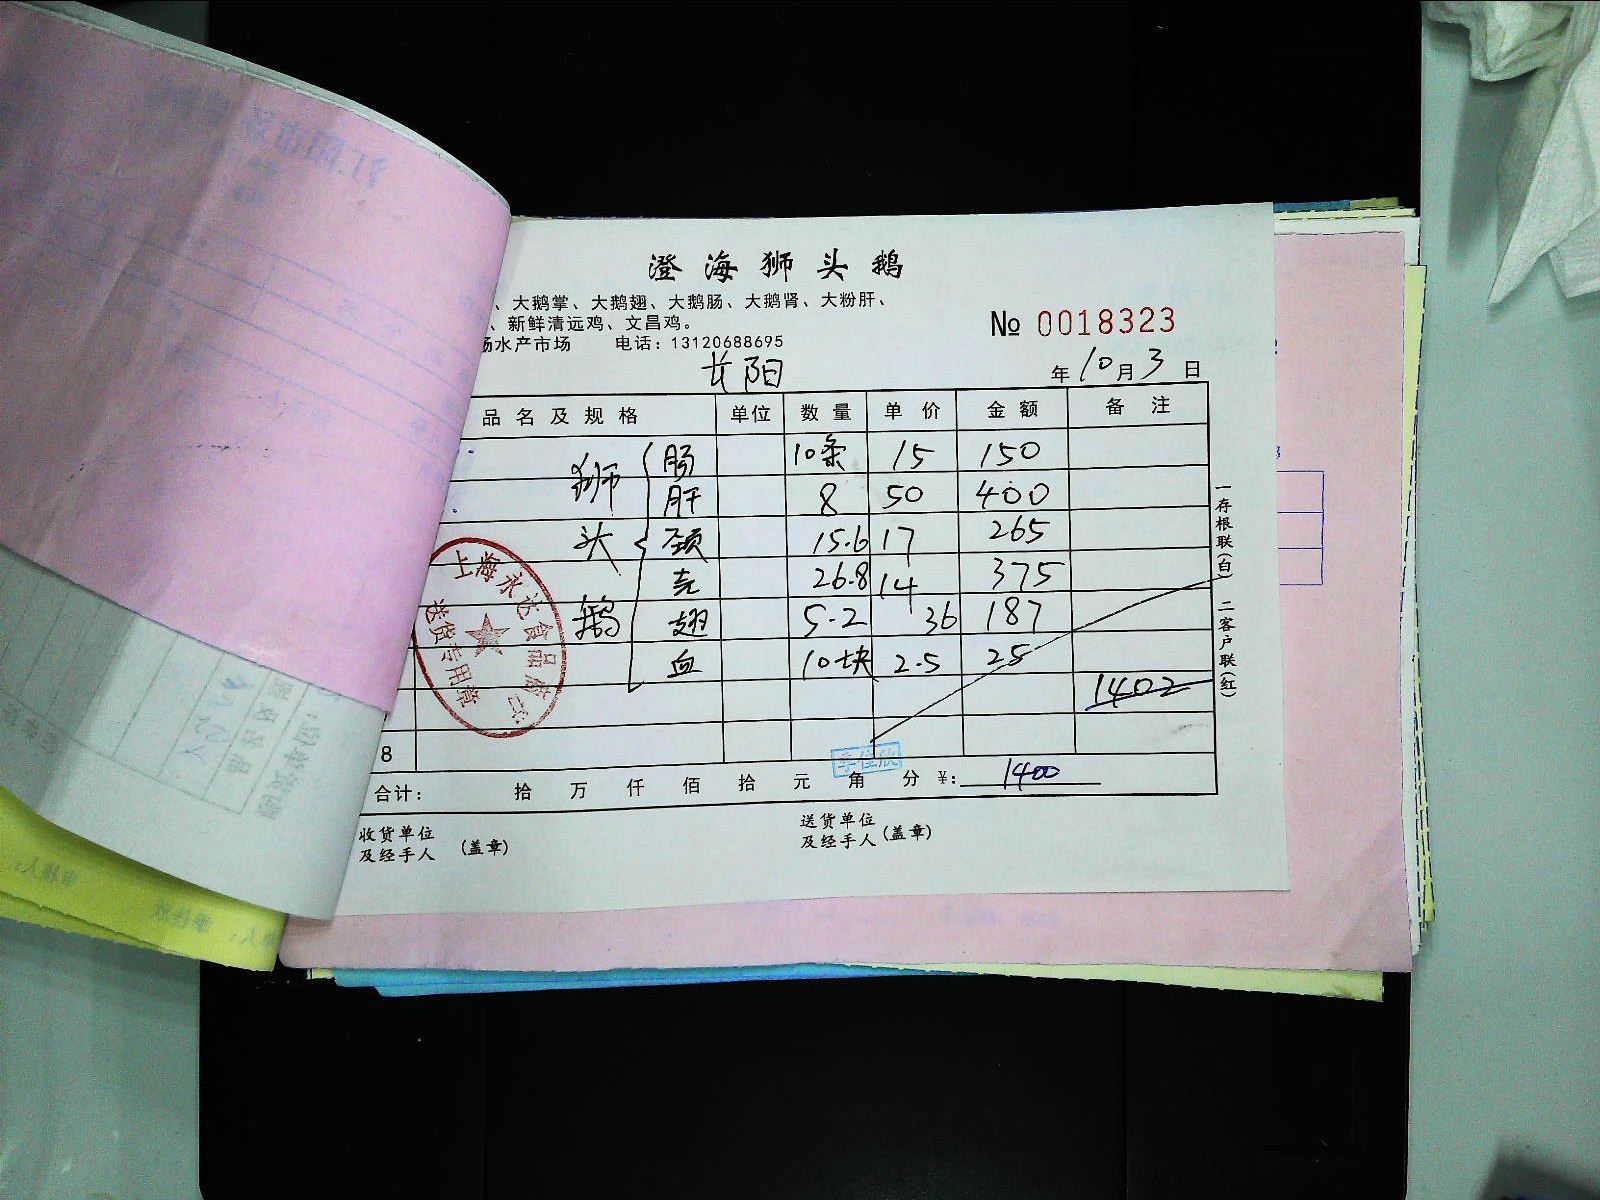 澄海狮头鹅
、大鹅掌、大鹅翅、大鹅肠、大鹅肾、大粉肝、
、新鲜清远鸡、文昌鸡。
杨水产市场 电话：13120688695
№ 0018323
长阳
年 10 月 3 日
品名及规格 单位 数量 单价 金额 备注
狮头鹅
肠 10条 15 150
肝 8 50 400
颈 15.6 17 265
壳 26.8 14 375
翅 5.2 36 187
血 10块 2.5 25
1402
8
合计： 拾 万 仟 佰 拾 元 角 分 ¥： 1400
收货单位
及经手人 （盖章）
送货单位
及经手人（盖章）
一存根联（白） 二客户联（红）
上海永达食品
送货专用章
李佳欣